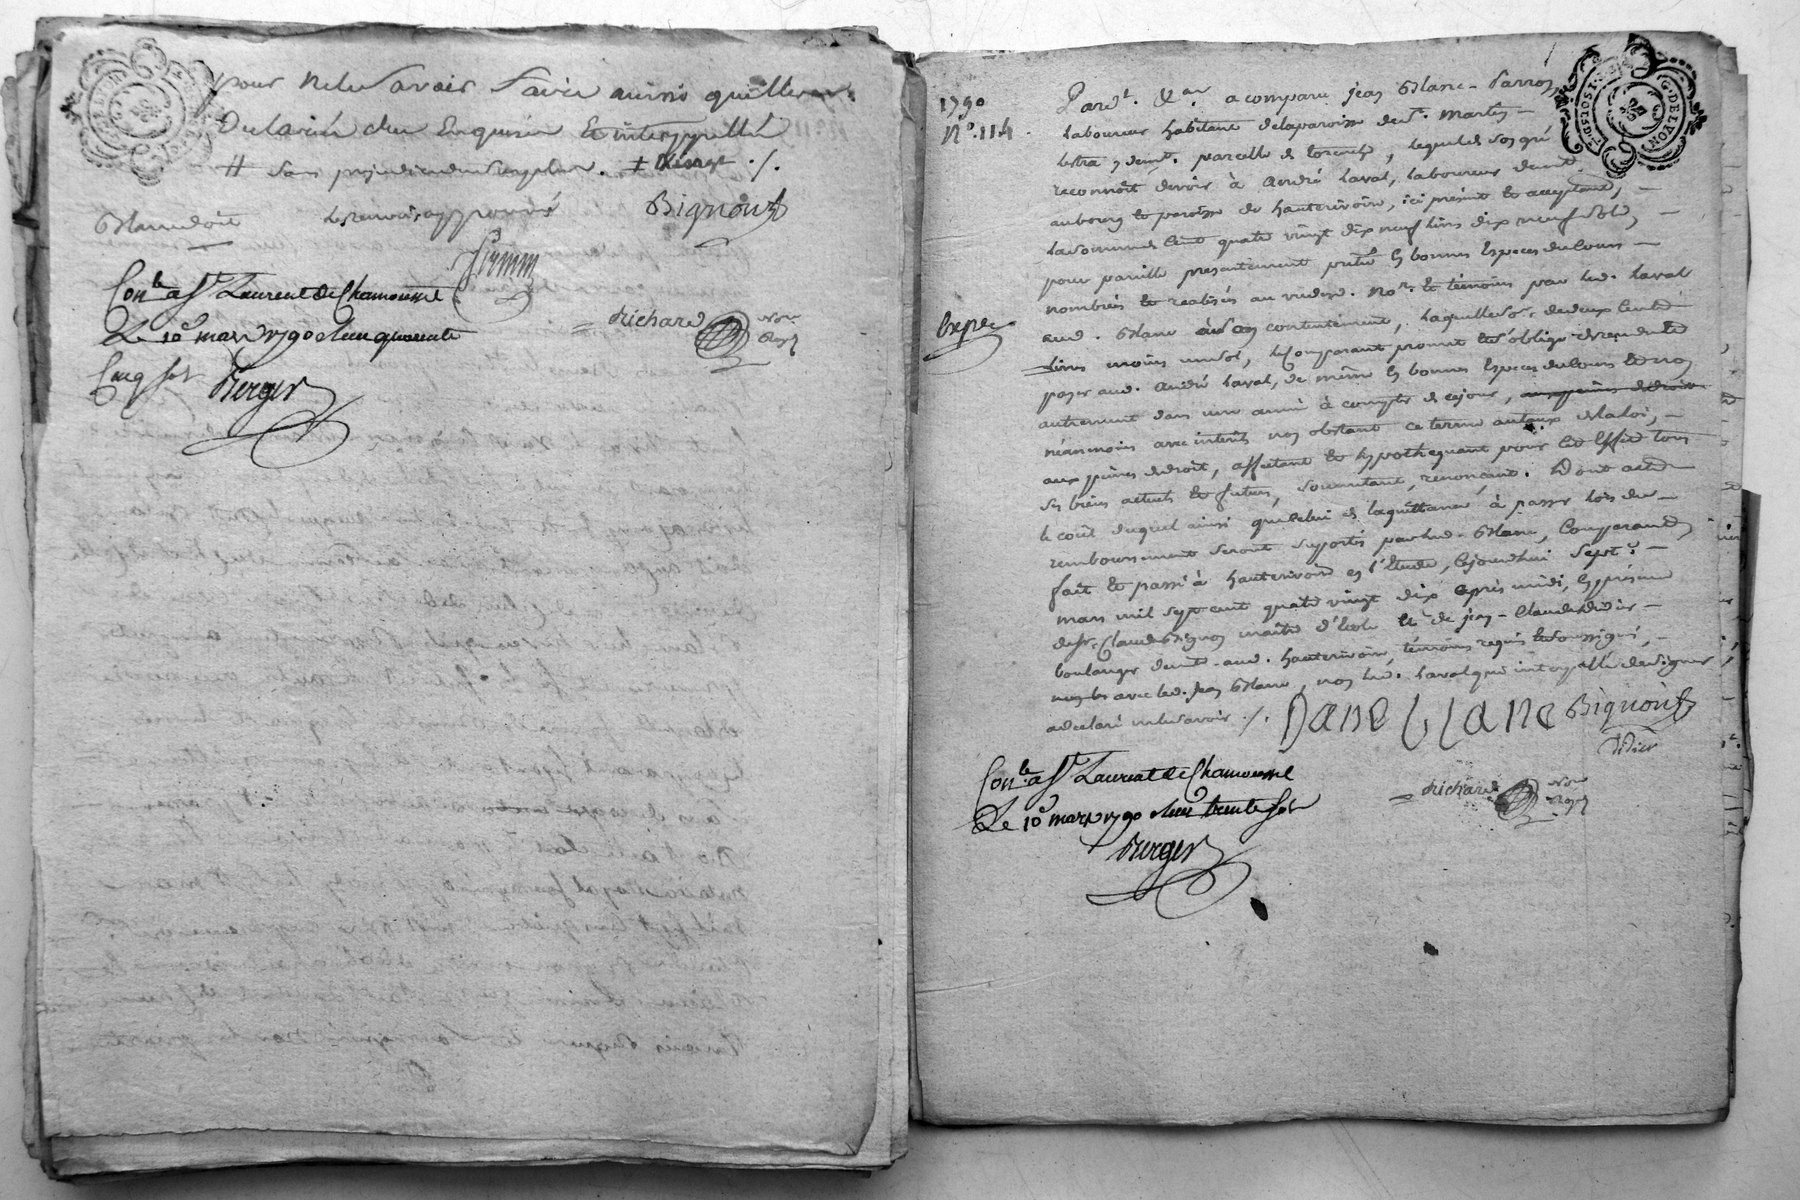 pour ne le savoir faire ainsi qu'il
Déclaré de ce Enquis et interpellé
// sans . + ./.
le renvoi approuvé Bignon
Conlé a St Laurent de Chamousset
Le 10 mars 1790 Reçu quarente
Cinq sols Berger
Richard Nore Royl
G. DE LYON
1790
No. 114.
Pardt. &ar a comparu jean Blanc
laboureur habitant de la paroisse de St. Martin
lestra, parcelle de, lequel de son gré
reconnoit devoir à André Laval, laboureur demt.
au bourg et paroisse de hauterivoire, ici présent et acceptant,
la somme de Cent quatre vingt dix neuf livres dix neuf sols,
pour pareille présentement prêtée En bonnes Espèces du Cours
nombrés et réalisés au vu desd. Nore. et témoins par led. Laval
aud. Blanc à son contentement, laquelle So. de deux Cents
livres moins un sol, le Comparant promet et s'oblige de rendre et
payer aud. André Laval, de même En bonnes Espèces du Cours et non
autrement dans une année à compter de ce jour, aux peines de droit
néanmoins avec intérêts non obstant ce terme au taux de la loi,
aux peines de droit, affectant et hypothequant pour cet Effet tous
Ses biens actuels et futurs, soumettant, renonçant. Dont acte
le coût duquel ainsi que Celui de la quittance à passer lors du
remboursement seront supportés par led. Blanc, Comparant
fait et passé à hauterivoire en l'Etude, Cejourd'hui Sept
mars mil sept cent quatre vingt dix après midi, En présence
de Sr. Claude Bignon maitre d'Ecole et de jean-Claude Didier
boulanger demt. aud. hauterivoire, témoins requis et soussignés,
avec led. jean Blanc, non led. Laval qui interpellé de signer
a déclaré ne le savoir ./. Bignon
Didier
Conlé a St Laurent de Chamousset
Le 10 mars 1790 Reçu trente sols
Richard Nore Royl
Berger